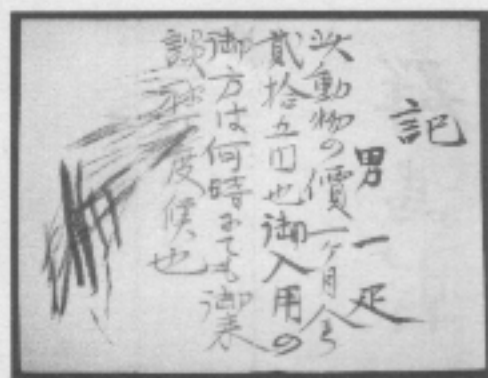 記
男一疋
此動物の價一ケ月金
貳拾五円也御入用の
御方は何時にても御来
談被下度候也